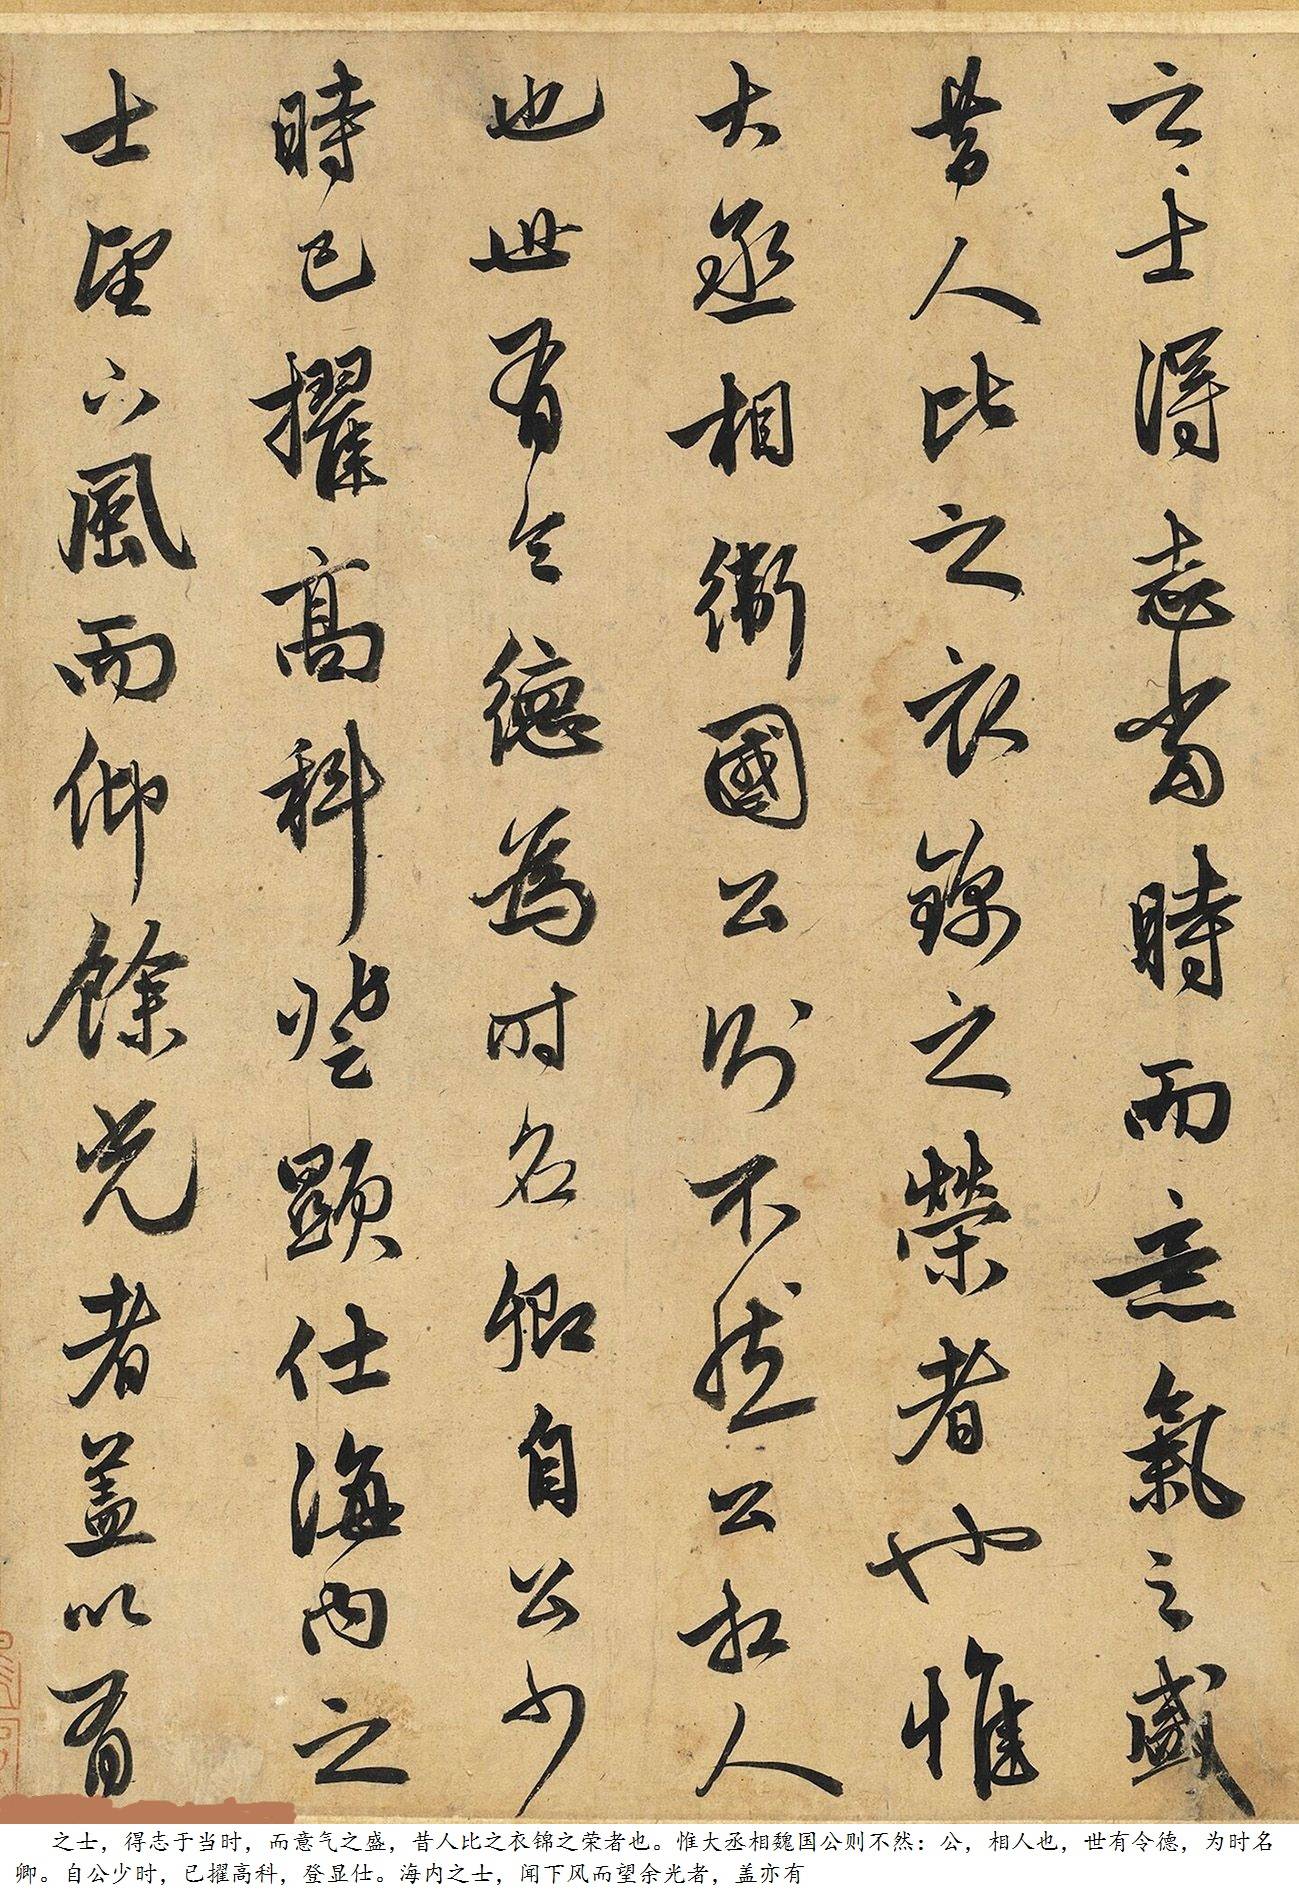 之士得志當時而意氣之盛
昔人比之衣錦之榮者也惟
大丞相衛國公則不然公相人
也世有令德為時名卿自公少
時已擢高科登顯仕海內之
士望下風而仰餘光者蓋以有
之士，得志于当时，而意气之盛，昔人比之衣锦之荣者也。惟大丞相魏国公则不然：公，相人也，世有令德，为时名
卿。自公少时，已擢高科，登显仕。海内之士，闻下风而望余光者，盖亦有